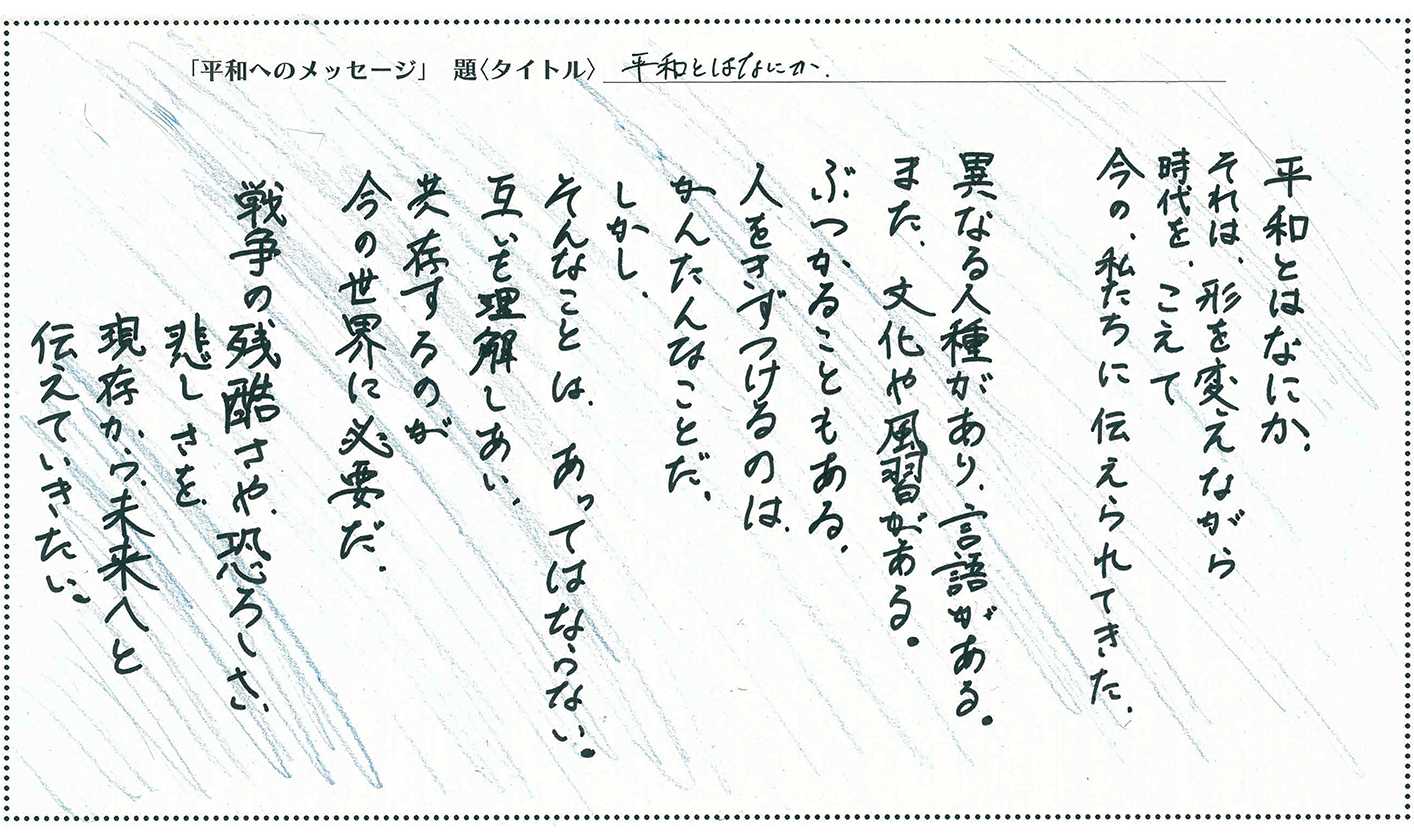 「平和へのメッセージ」 題〈タイトル〉 平和とはなにか.
平和とはなにか.
それは、形を変えながら
時代を、こえて
今の、私たちに伝えられてきた.
異なる人種があり、言語がある.
また、文化や風習がある.
ぶつかることもある.
人をきずつけるのは.
かんたんなことだ.
しかし、
そんなことは、あってはならない.
互いを理解しあい、
共存するのが
今の世界に必要だ.
戦争の残酷さや、恐ろしさ、
悲しさを、
現存から、未来へと
伝えていきたい。